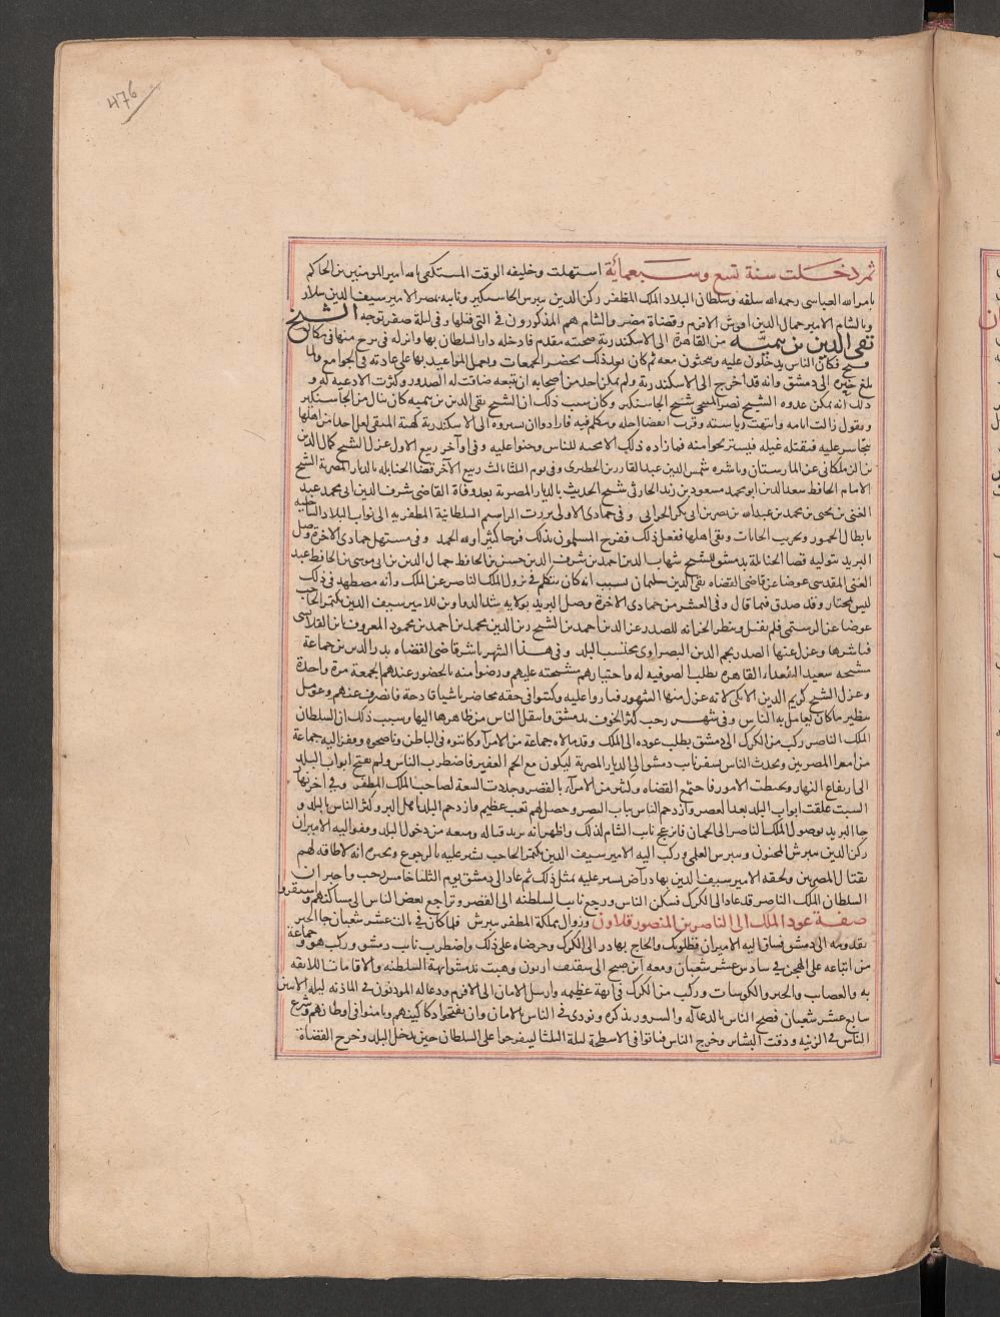 476
ثم دخلت سنة تسع وسبعمائة استهلت وخليفه الوقت المستكفي بالله امير المومنين بن الحاكم
بامر الله العباسي رحمه الله سلفه وسلطان البلاد الملك المظفر ركن الدين بيبرس الجاشنكير ونايبه بمصر الامير سيف الدين سلار
وبالشام الامير جمال الدين اقوش الافرم وقضاة مصر والشام هم المذكورون في التي قبلها وفي ليلة صفر توجه الشيخ
تقي الدين بن تيميّه من القاهرة الى الاسكندرية صحبته مقدم فادخله دار السلطان بها وانزله في برج منها في مكان
فسيح فكان الناس يدخلون عليه ويبحثون معه ثم كان بعد ذلك يحضر الجمعات ويعمل المواعيد بها على عادته في الجوامع ولما
بلغ خبره الى دمشق وانه قد اخرج الى الاسكندرية ولم يمكن احد من اصحابه ان يتبعه ضاقت له الصدور وكثرت الادعيه له و
ذلك انه تمكن عدوه الشيخ نصر المنبجي شيخ الجاشنكير وكان سبب ذلك ان الشيخ تقي الدين بن تيميه كان ينال من الجاشنكير
ويقول زالت ايامه وانتهت رياسته وقرب انقضا اجله ويتكلم فيه فارادوا ان يسيروه الى الاسكندرية كهيئة المنفي لعل احدا من اهلها
يتجاسر عليه فيقتله غيله فيستريحوا منه فما زاده ذلك الا محبه للناس وحنوا عليه وفي اواخر ربيع الاول عزل الشيخ كمال الدين
بن الزملكاني عن المارستان وباشره شمس الدين عبد القادر بن الخطيري وفي يوم الثلثا ثالث ربيع الاخر قضا الحنابله بالديار المصرية الشيخ
الامام الحافظ سعد الدين ابو محمد مسعود بن زيد الحارثي شيخ الحديث بالديار المصرية بعد وفاة القاضي شرف الدين ابي محمد عبد
الغني بن يحيى بن محمد بن عبد الله بن نصر بن ابي بكر الحراني وفي جمادى الاولى برزت المراسيم السلطانية المظفريه الى نواب البلاد الساحليه
بابطال الخمور وتخريب الحانات ونفي اهلها ففعل ذلك ففرح المسلمون بذلك فرحا كثيرا ولله الحمد وفي مستهل جمادى الاخرة وصل
البريد بتوليه قضا الحنابلة بدمشق للشيخ شهاب الدين احمد بن شرف الدين حسن بن الحافظ جمال الدين بن ابي موسى بن الحافظ عبد
الغني المقدسي عوضا عن قاضي القضاه تقي الدين سليمان بسبب انه كان يتكلم في نزول الملك الناصر عن الملك وانه مضطهد في ذلك
ليس بمختار وقد صدق فيما قال وفي العشر من جمادى الاخرة وصل البريد بولايه شد الدواوين للامير سيف الدين بكتمر الحاجب
عوضا عن الرستمي فلم يقبل وبنظر الخزانه للصدر عز الدين احمد بن الشيخ زين الدين محمد بن احمد بن محمود المعروف بابن القلانسي
فباشرها وعزل عنها الصدر نجم الدين البصراوي محتسب البلد وفي هذا الشهر باشر قاضي القضاه بدر الدين بن جماعة
مشيخه سعيد السعداء القاهره بطلب الصوفيه له واختيارهم مشيخته عليهم ورضوا منه بالحضور عندهم الجمعة مرة واحدة
وعزل الشيخ كريم الدين الايكي لانه عزل منها الشهود فثاروا عليه وكتبوا في حقه محاضر باشيا قادحة فانصرف عنهم وعومل
بنظير ما كان يعامل به الناس وفي شهر رجب كثر الخوف بدمشق وانتقل الناس من ظاهرها اليها وسبب ذلك ان السلطان
الملك الناصر ركب من الكرك الى دمشق يطلب عوده الى الملك وقد مالاه جماعة من الامرا وكاتبوه في الباطن وناصحوه وقفز اليه جماعة
من امرا المصريين وتحدث الناس بسفر نايب دمشق الى الديار المصرية ليكون مع الجم الغفير فاضطرب الناس ولم تفتح ابواب البلد
الى ارتفاع النهار وتخبطت الامور فاجتمع القضاه وكثير من الامرا بالقصر وجددت البيعة لصاحبها الملك المظفر وفي اخر نهار
السبت غلقت ابواب البلد بعد العصر وازدحم الناس بباب النصر وحصل لهم تعب عظيم وازدحم البلد باهل البر وكثر الناس بالبلد و
جا البريد بوصول الملك الناصر الى الخمان فانزعج نايب الشام لذلك واظهر انه يريد قتاله ومنعه من دخول البلد وقفز اليه الاميران
ركن الدين بيبرس المجنون وبيبرس العلمي وركب اليه الامير سيف الدين بكتمر الحاجب يشير عليه بالرجوع ويخبره انه لا طاقه لهم
بقتال المصريين ولحقه الامير سيف الدين بهادر آص يشير عليه بمثل ذلك ثم عاد الى دمشق يوم الثلثا خامس رجب واخبر ان
السلطان الملك الناصر قد عاد الى الكرك فسكن الناس ورجع نايب السلطنه الى القصر وتراجع بعض الناس الى مساكنهم واستقروا
صفة عود الملك الى الناصر بن المنصور قلاون وزوال مملكة المظفر بيبرس فلما كان في ثالث عشر شعبان جا الخبر
بقدومه الى دمشق فساق اليه الاميران قطلوبك والحاج بهادر الى الكرك وحرضاه على ذلك واضطرب نايب دمشق وركب هو وجماعة
من اتباعه على الهجن في سادس عشر شعبان ومعه ابن صبح الى شقيف ارنون وهيت بدمشق ابهة السلطنه والاقامات اللايقه
به والعصايب والخبر والكوسات وركب من الكرك في ابهة عظيمه وارسل الامان الى الافرم ودعا له الموذنون في الماذنه ليلة الاثنين
سابع عشر شعبان فصبح الناس بالدعا له والسرور بذكره ونودي في الناس بالامان وان يفتحوا دكاكينهم ويامنوا في اوطانهم وشرع
الناس في الزينه ودقت البشاير وخرج الناس فباتوا في الاسطحة ليلة الثلثا ليتفرجوا على السلطان حين يدخل البلد وخرج القضاة